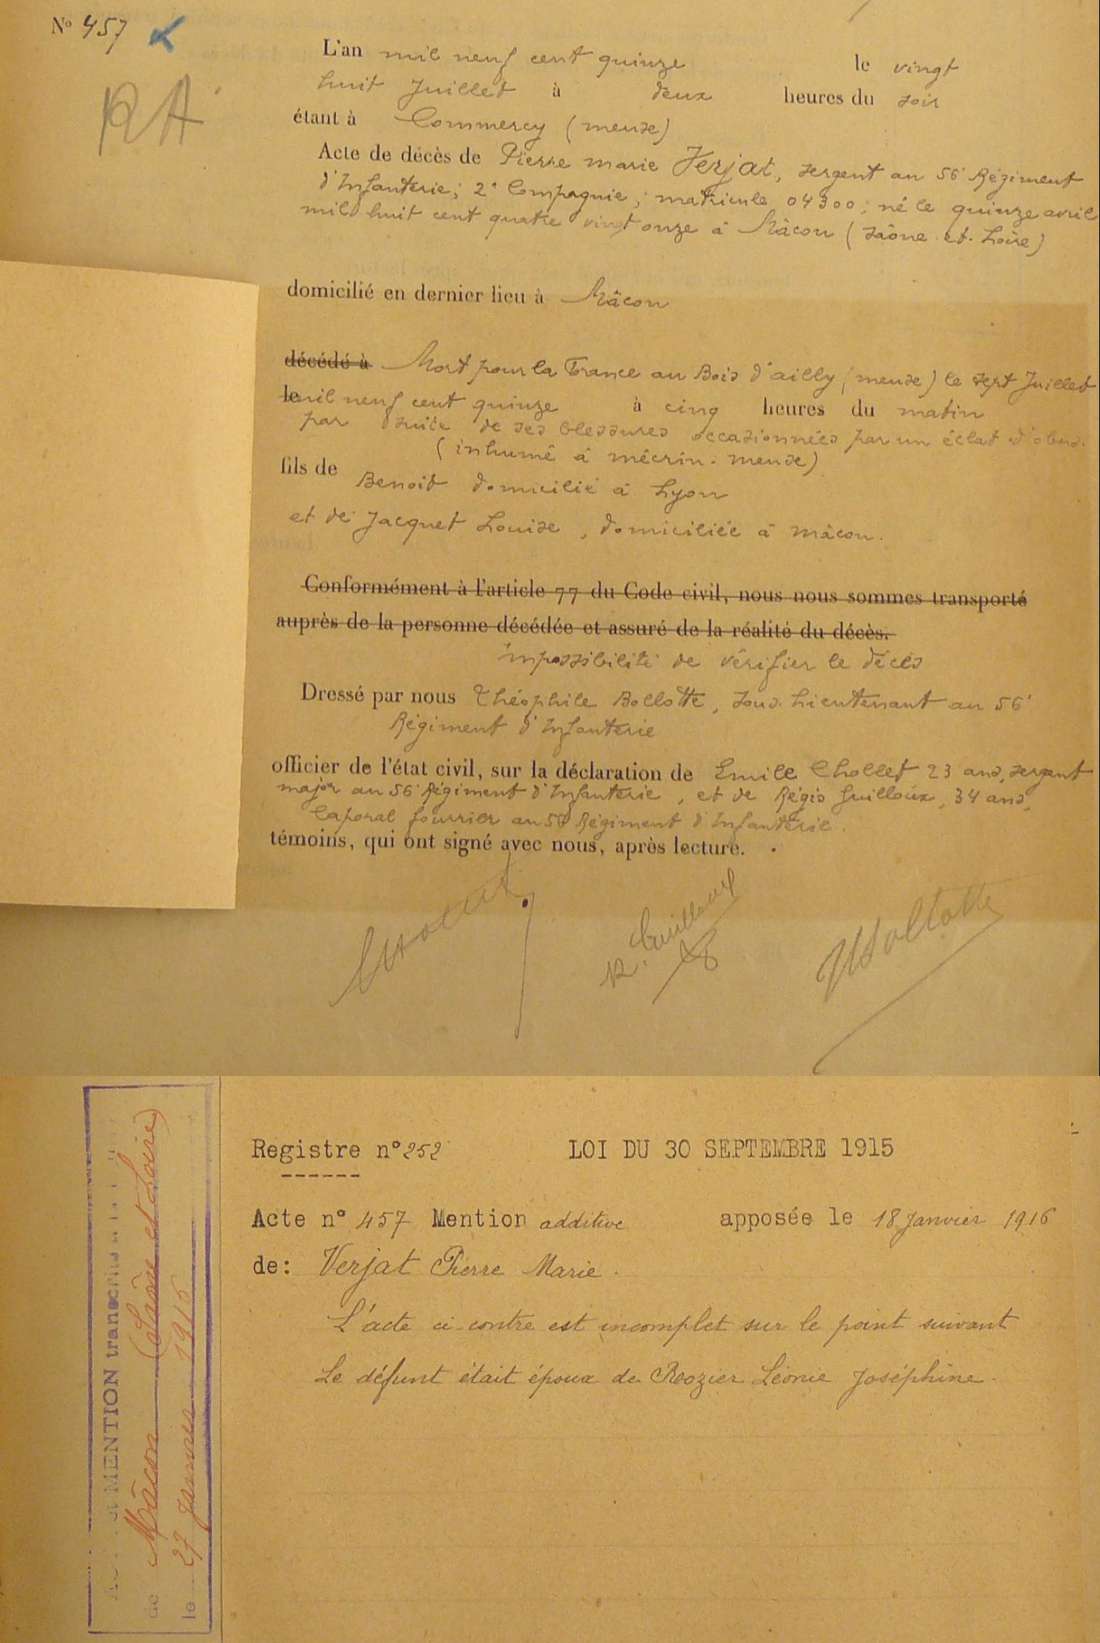 N° 457
RA
L'an mil neuf cent quinze le vingt
huit Juillet à deux heures du soir
étant à Commercy (meuse)
Acte de décès de Pierre marie Verjat, sergent au 56e Régiment
d'Infanterie; 2e Compagnie; matricule 04300; né le quinze avril
mil huit cent quatre vingt onze à Mâcon (Saône et Loire)
domicilié en dernier lieu à Mâcon
décédé à Mort pour la France au Bois d'ailly (meuse) le sept Juillet
le mil neuf cent quinze à cinq heures du matin
par suite de ses blessures occasionnées par un éclat d'obus.
(inhumé à mécrin. meuse)
fils de Benoit domicilié à Lyon
et de Jacquet Louise, domiciliée à mâcon.
Conformément à l'article 77 du Code civil, nous nous sommes transporté
auprès de la personne décédée et assuré de la réalité du décès.
impossibilité de vérifier le décès
Dressé par nous Théophile Bollotte, sous-Lieutenant au 56e
Régiment d'Infanterie
officier de l'état civil, sur la déclaration de Emile Chollet 23 ans, sergent
major au 56e Régiment d'Infanterie, et de Régis Guilloux, 34 ans,
Caporal fourrier au 56e Régiment d'Infanterie.
témoins, qui ont signé avec nous, après lecture.
R. Guilloux
Registre n° 252 LOI DU 30 SEPTEMBRE 1915
Acte n° 457 Mention additive apposée le 18 Janvier 1916
de: Verjat Pierre Marie.
L'acte ci-contre est incomplet sur le point suivant
Le défunt était époux de Rozier Léonie Joséphine.
MENTION transcrits
de Mâcon (Saône et Loire)
le 27 Janvier 1916